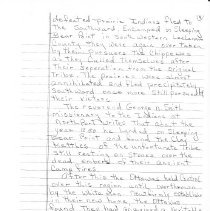 defeated prairie Indians fled to
the Southward. Encamped on Sleeping
Bear Point in South Western Leelanau
County they were again overtaken
by their pursuers the Chippewas
as they called themselves after
their separation from the original
Tribe. The prairies were almost
annihilated and fled precipitately
Southward once more pursued by
their victors.
The reverend George n. Smith
missionary to the Indians at
North Port writes that in the
year 1850 he landed on Sleeping
Bear Point and found the clay
kettles of the unfortunate Tribe
still resting on stones over the
dead embers of their ancient
Camp fires.
After this the Ottawas held control
over this region until overthrown
by the white man. Installed
in their new home, the Ottawas
found they had acquired a veritable